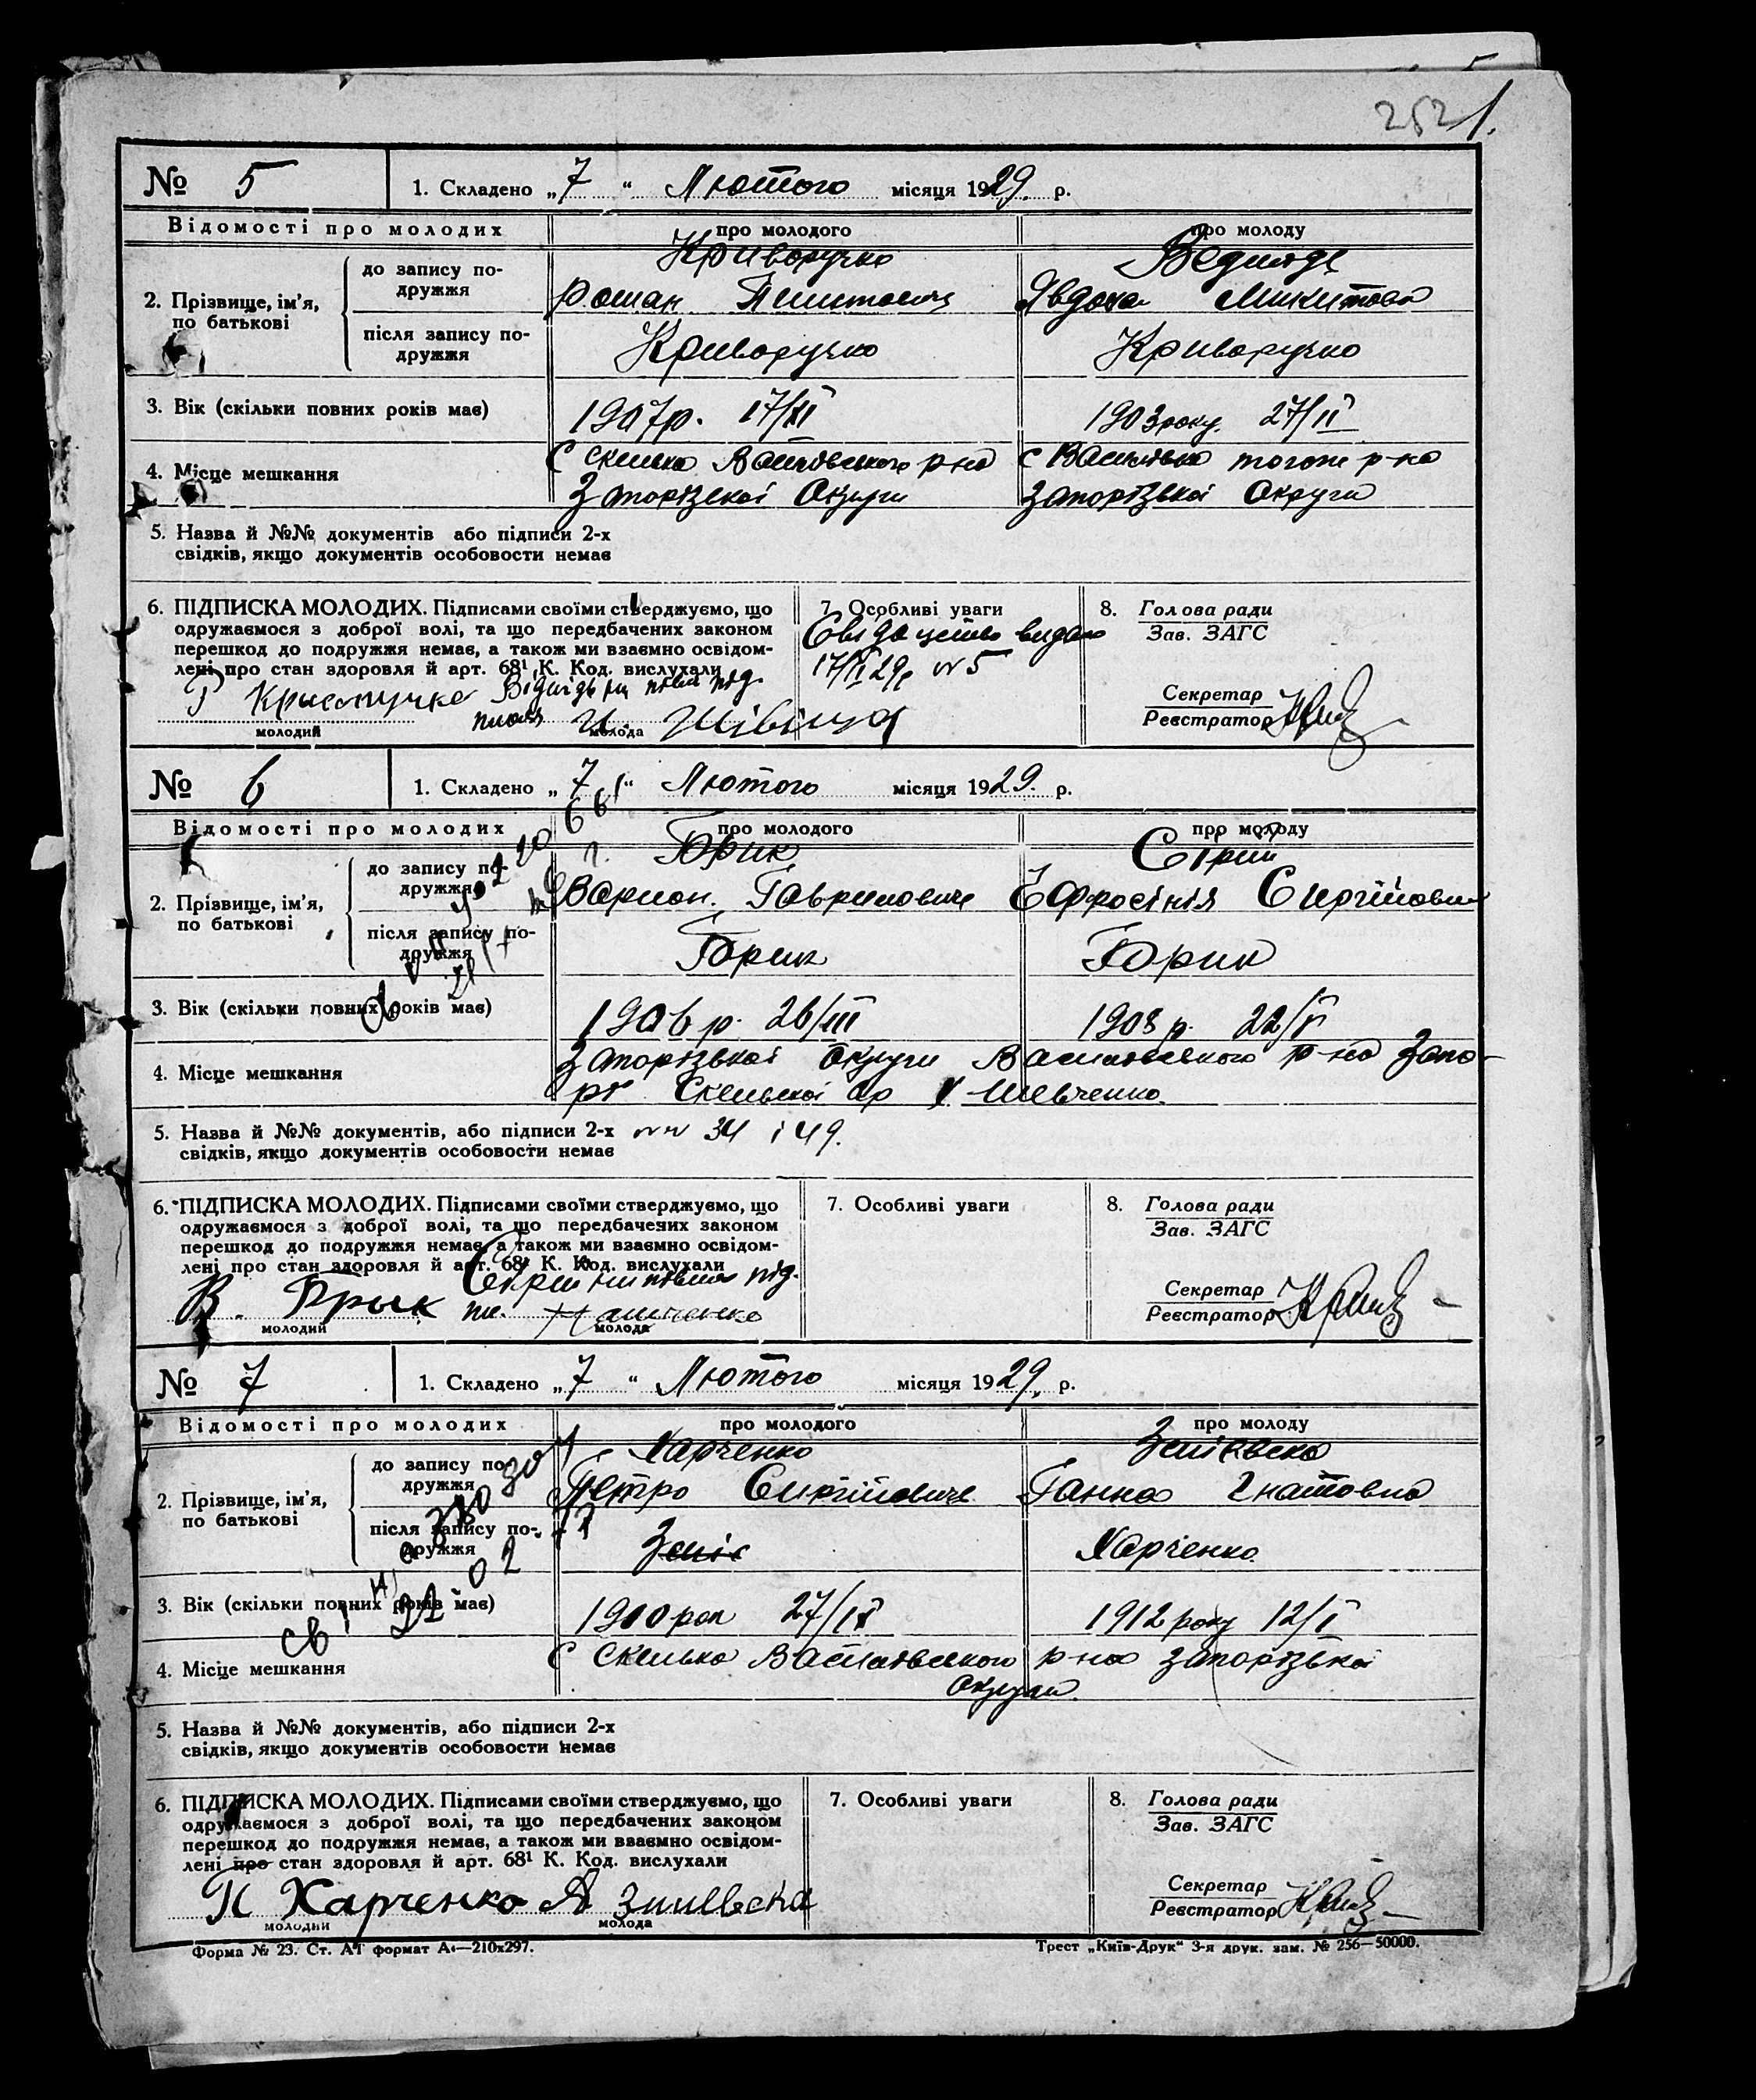 252 1.
№ 5 1. Складено „7“ Лютого місяця 1929. р.
Відомості про молодих про молодого про молоду
2. Прізвище, ім'я, по батькові
до запису подружжя Криворучко
Роман Явдоха Микитова
після запису подружжя Криворучко Криворучко
3. Вік (скільки повних років має) 1907р. 17/XII 1903 року. 27/II
4. Місце мешкання С Скелька р-на С Василівка того ж р-на
Запорізької Округи Запорізької Округи
5. Назва й №№ документів або підписи 2-х
свідків, якщо документів особовости немає
6. ПІДПИСКА МОЛОДИХ. Підписами своїми стверджуємо, що
одружаємося з доброї волі, та що передбачених законом
перешкод до подружжя немає, а також ми взаємно освідом-
лені про стан здоровля й арт. 68¹ К. Код. вислухали
молодий молода
7. Особливі уваги
Свідоцтво видано
17/II 29р № 5
8. Голова ради
Зав. ЗАГС
Секретар
Реєстратор
№ 6 1. Складено „7“ Лютого місяця 1929. р.
Відомості про молодих про молодого про молоду
2. Прізвище, ім'я, по батькові
до запису подружжя Сірий
Гаврилович Єфросінія Сиргійовна
після запису подружжя
3. Вік (скільки повних років має) 1906 р. 26/III 1908 р. 22/V
4. Місце мешкання Запорізької Округи Василівського р-на
Скельської с/р Шевченко.
5. Назва й №№ документів, або підписи 2-х №№ 34 і 49.
свідків, якщо документів особовости немає
6. ПІДПИСКА МОЛОДИХ. Підписами своїми стверджуємо, що
одружаємося з доброї волі, та що передбачених законом
перешкод до подружжя немає, а також ми взаємно освідом-
лені про стан здоровля й арт. 68¹ К. Код. вислухали
В.
молодий молода
7. Особливі уваги
8. Голова ради
Зав. ЗАГС
Секретар
Реєстратор
№ 7 1. Складено „7“ Лютого місяця 1929. р.
Відомості про молодих про молодого про молоду
2. Прізвище, ім'я, по батькові
до запису подружжя Харченко
Петро Сиргійович Ганна Гнатовна
після запису подружжя Харченко.
3. Вік (скільки повних років має) 1910 рок 27/IX 1912 року 12/I
4. Місце мешкання С Скелька Василівського р-на Запорізької
Округи.
5. Назва й №№ документів, або підписи 2-х
свідків, якщо документів особовости немає
6. ПІДПИСКА МОЛОДИХ. Підписами своїми стверджуємо, що
одружаємося з доброї волі, та що передбачених законом
перешкод до подружжя немає, а також ми взаємно освідом-
лені про стан здоровля й арт. 68¹ К. Код. вислухали
П Харченко А
молодий молода
7. Особливі уваги
8. Голова ради
Зав. ЗАГС
Секретар
Реєстратор
Форма № 23. Ст. АТ формат А₄—210х297. Трест „Київ-Друк“ 3-я друк. зам. № 256—50000.